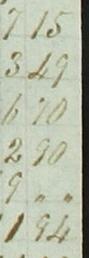 7 15
3 49
6 70
2 90
9 " "
1 94